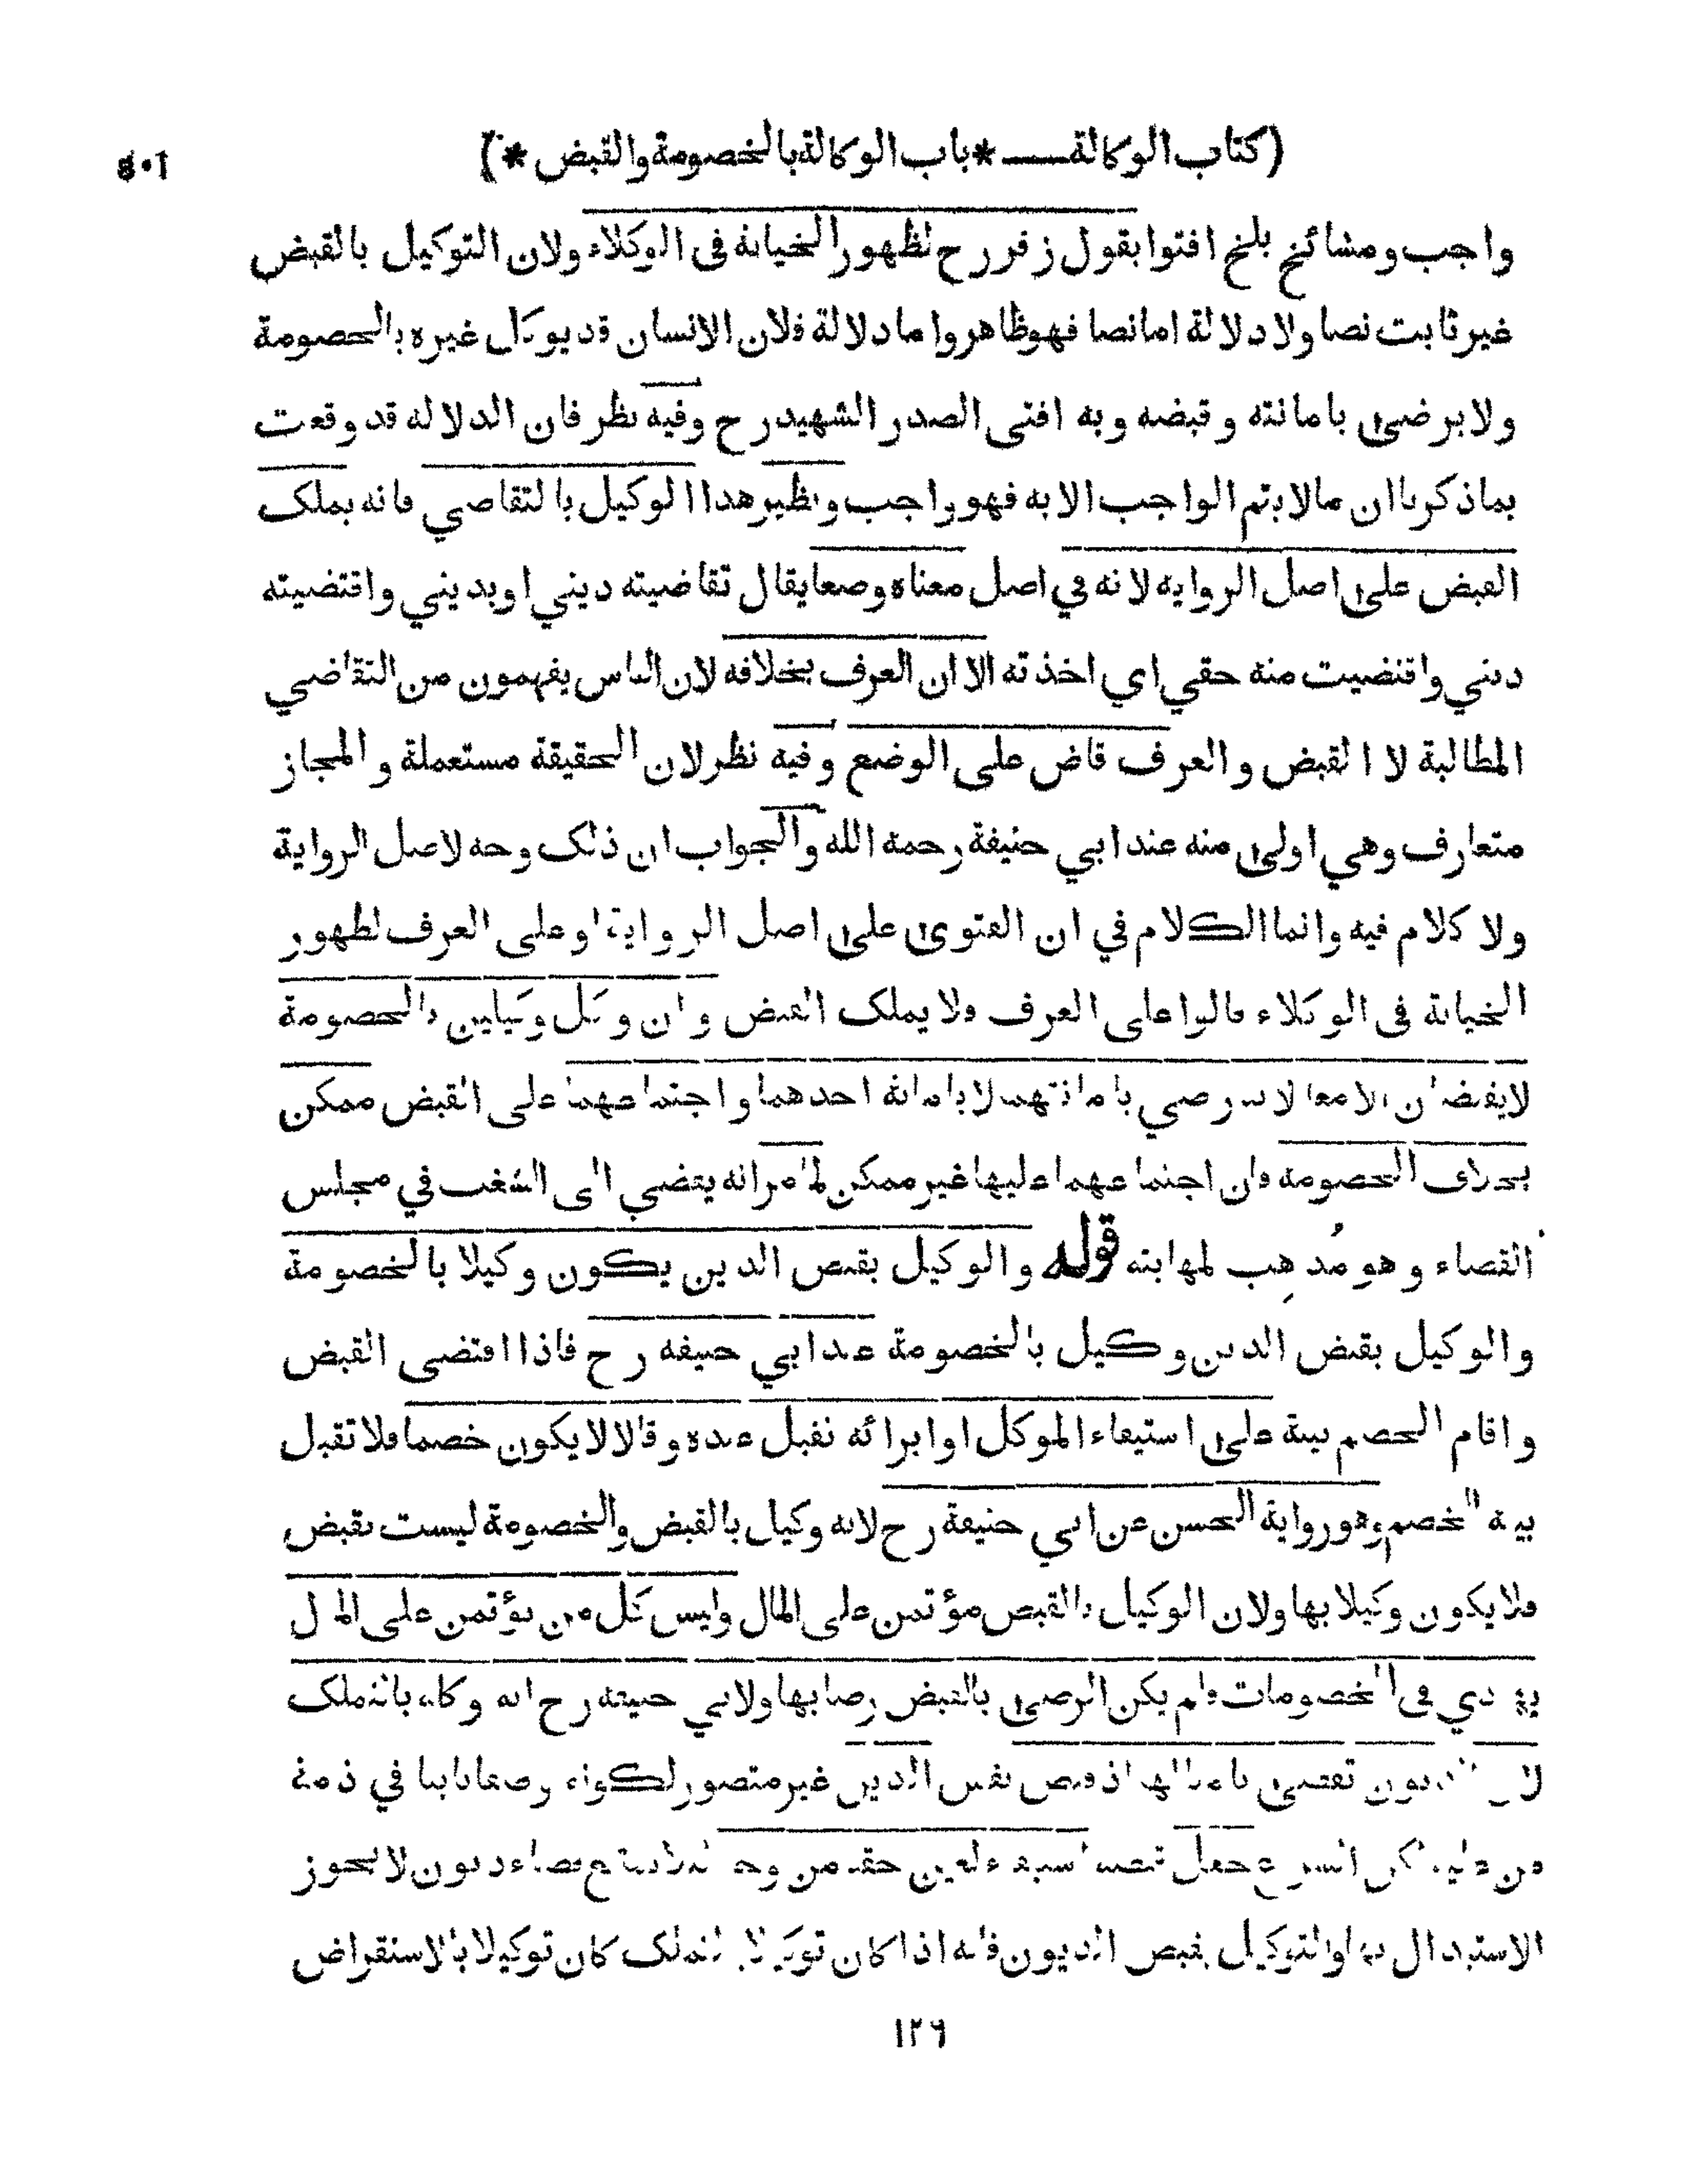 (كتاب الوكالة ـــــ *باب الوكالة بالخصومة والقبض *)
واجب ومشائخ بلخ افتوا بقول زفر رح لظهور الخيانة فى الوكلاء ولان التوكيل بالقبض
غير ثابت نصا ولا دلالة اما نصا فهو ظاهر واما دلالة فلان الانسان قد يوكل غيره بالخصومة
ولا يرضى بامانته وقبضه وبه افتى الصدر الشهيد رح وفيه نظر فان الدلالة قد وقعت
بما ذكرنا ان مالا يتم الواجب الا به فهو واجب ونظير هذا الوكيل بالتقاضي فانه يملك
القبض على اصل الرواية لانه في اصل معناه وضعا يقال تقاضيته ديني او بديني واقتضيته
ديني واقتضيت منه حقي اي اخذته الا ان العرف بخلافه لان الناس يفهمون من التقاضي
المطالبة لا القبض والعرف قاض على الوضع وفيه نظر لان الحقيقة مستعملة والمجاز
متعارف وهي اولى منه عند ابي حنيفة رحمة الله والجواب ان ذلك وجه لاصل الرواية
ولا كلام فيه وانما الكلام في ان الفتوى على اصل الرواية او على العرف لظهور
الخيانة فى الوكلاء قالوا على العرف فلا يملك القبض وان وكل وكيلين بالخصومة
لا يقبضان الا معا لانه رضي بامانتهما لا بامانة احدهما واجتماعهما على القبض ممكن
بخلاف الخصومة فان اجتماعهما عليها غير ممكن لما مر انه يفضي الى الشغب في مجلس
القضاء وهو مُذهِب لمهابته قوله والوكيل بقبض الدين يكون وكيلا بالخصومة
والوكيل بقبض الدين وكيل بالخصومة عند ابي حنيفة رح فاذا اقتضى القبض
واقام الخصم بينة على استيفاء الموكل او ابرائه تقبل عنده وقالا لا يكون خصما فلا تقبل
بينة الخصم وهو رواية الحسن عن ابي حنيفة رح لانه وكيل بالقبض والخصومة ليست بقبض
فلا يكون وكيلا بها ولان الوكيل بالقبض مؤتمن على المال وليس كل من يؤتمن على المال
يهتدي فى الخصومات فلم يكن الرضى بالقبض رضا بها ولابي حنيفة رح انه وكله بالتملك
لان الديون تقضى بامثالها اذ قبض نفس الدين غير متصور لكونه وصفا ثابتا في ذمة
من عليه لكن الشرع جعل قبضه استيفاء لعين حقه من وجه لئلا يمتنع قضاء ديون لا يجوز
الاستبدال بها والتوكيل بقبض الديون فانه اذا كان توكيلا بالتملك كان توكيلا بالاستقراض
١٢٦